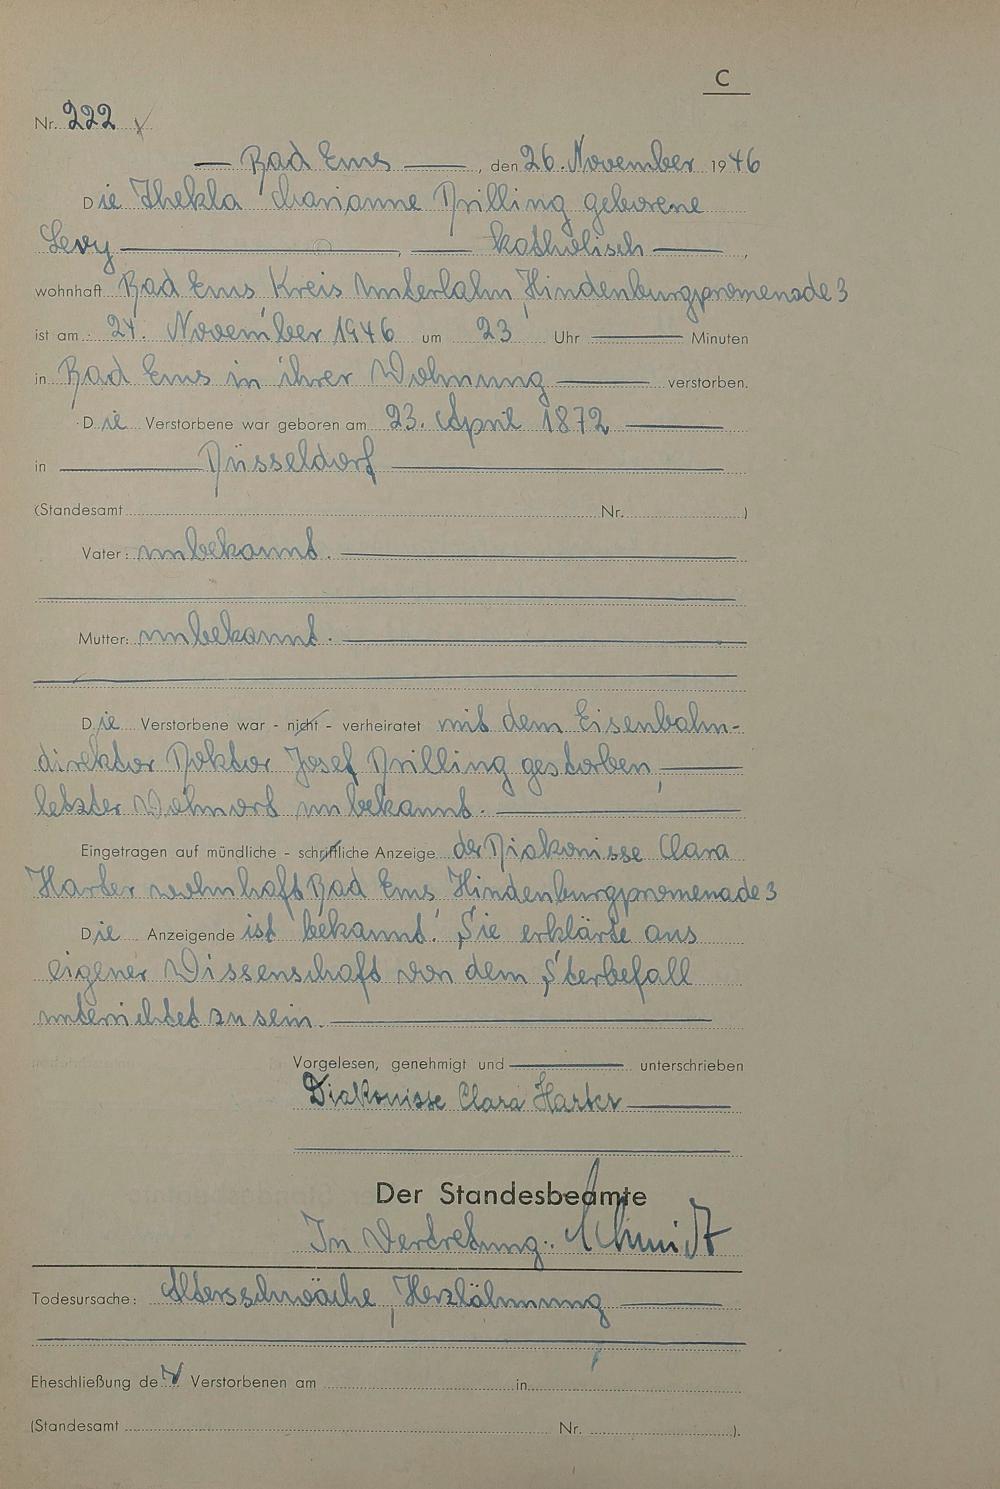 C
Nr. 222
Bad Ems, den 26. November 1946
Die Thekla Marianne Drilling geborene
Levy, katholisch,
wohnhaft Bad Ems Kreis Unterlahn, Hindenburgpromenade 3
ist am 24. November 1946 um 23 Uhr Minuten
in Bad Ems in ihrer Wohnung verstorben.
Die Verstorbene war geboren am 23. April 1872
in Düsseldorf
(Standesamt Nr. )
Vater: unbekannt.
Mutter: unbekannt.
Die Verstorbene war - nicht - verheiratet mit dem Eisenbahn-
direktor Doktor Josef Drilling gestorben,
letzter Wohnort unbekannt.
Eingetragen auf mündliche - schriftliche Anzeige der Diakonisse Clara
Harter wohnhaft Bad Ems, Hindenburgpromenade 3
Die Anzeigende ist bekannt. Sie erklärte aus
eigener Wissenschaft von dem Sterbefall
unterrichtet zu sein.
Vorgelesen, genehmigt und unterschrieben
Diakonisse Clara Harter
Der Standesbeamte
In Vertretung: Schmidt
Todesursache: Altersschwäche, Herzlähmung
Eheschließung der Verstorbenen am in
(Standesamt Nr. ).